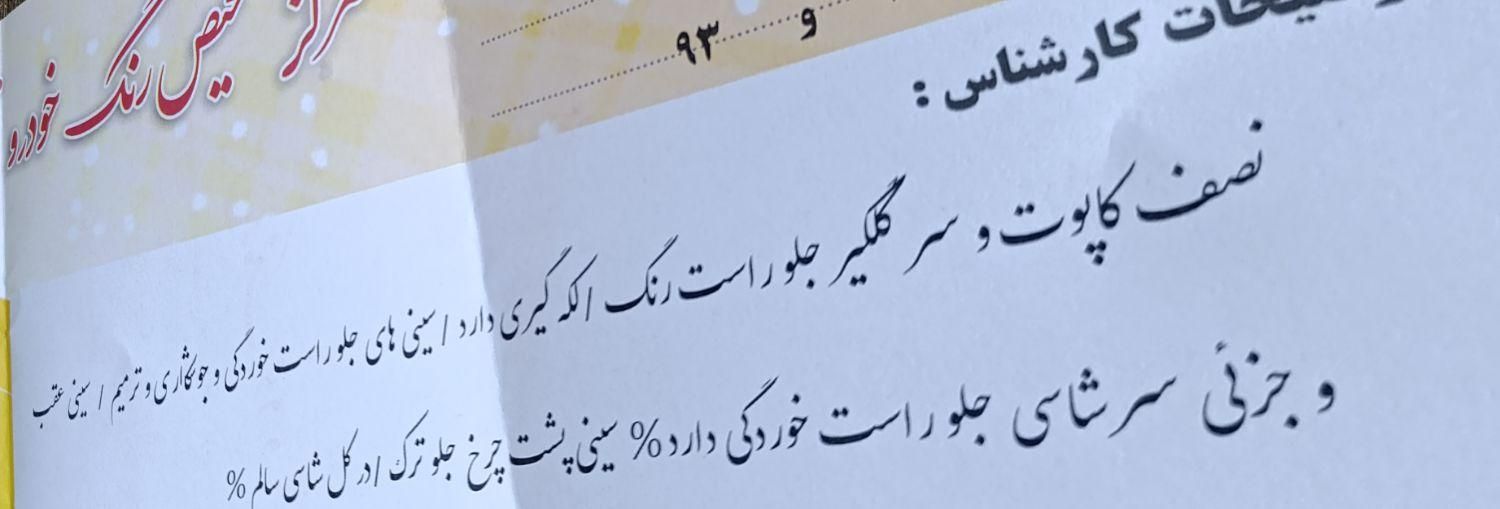 مرکز تشخیص رنگ خودرو
و ۹۳
توضیحات کارشناس :
نصف کاپوت و سر گلگیر جلو راست رنگ / لکه گیری دارد / سینی های جلو راست خوردگی و جوشکاری و ترمیم / سینی عقب
و جزئی سرشاسی جلو راست خوردگی دارد % سینی پشت چرخ جلو ترک / در کل شاسی سالم %